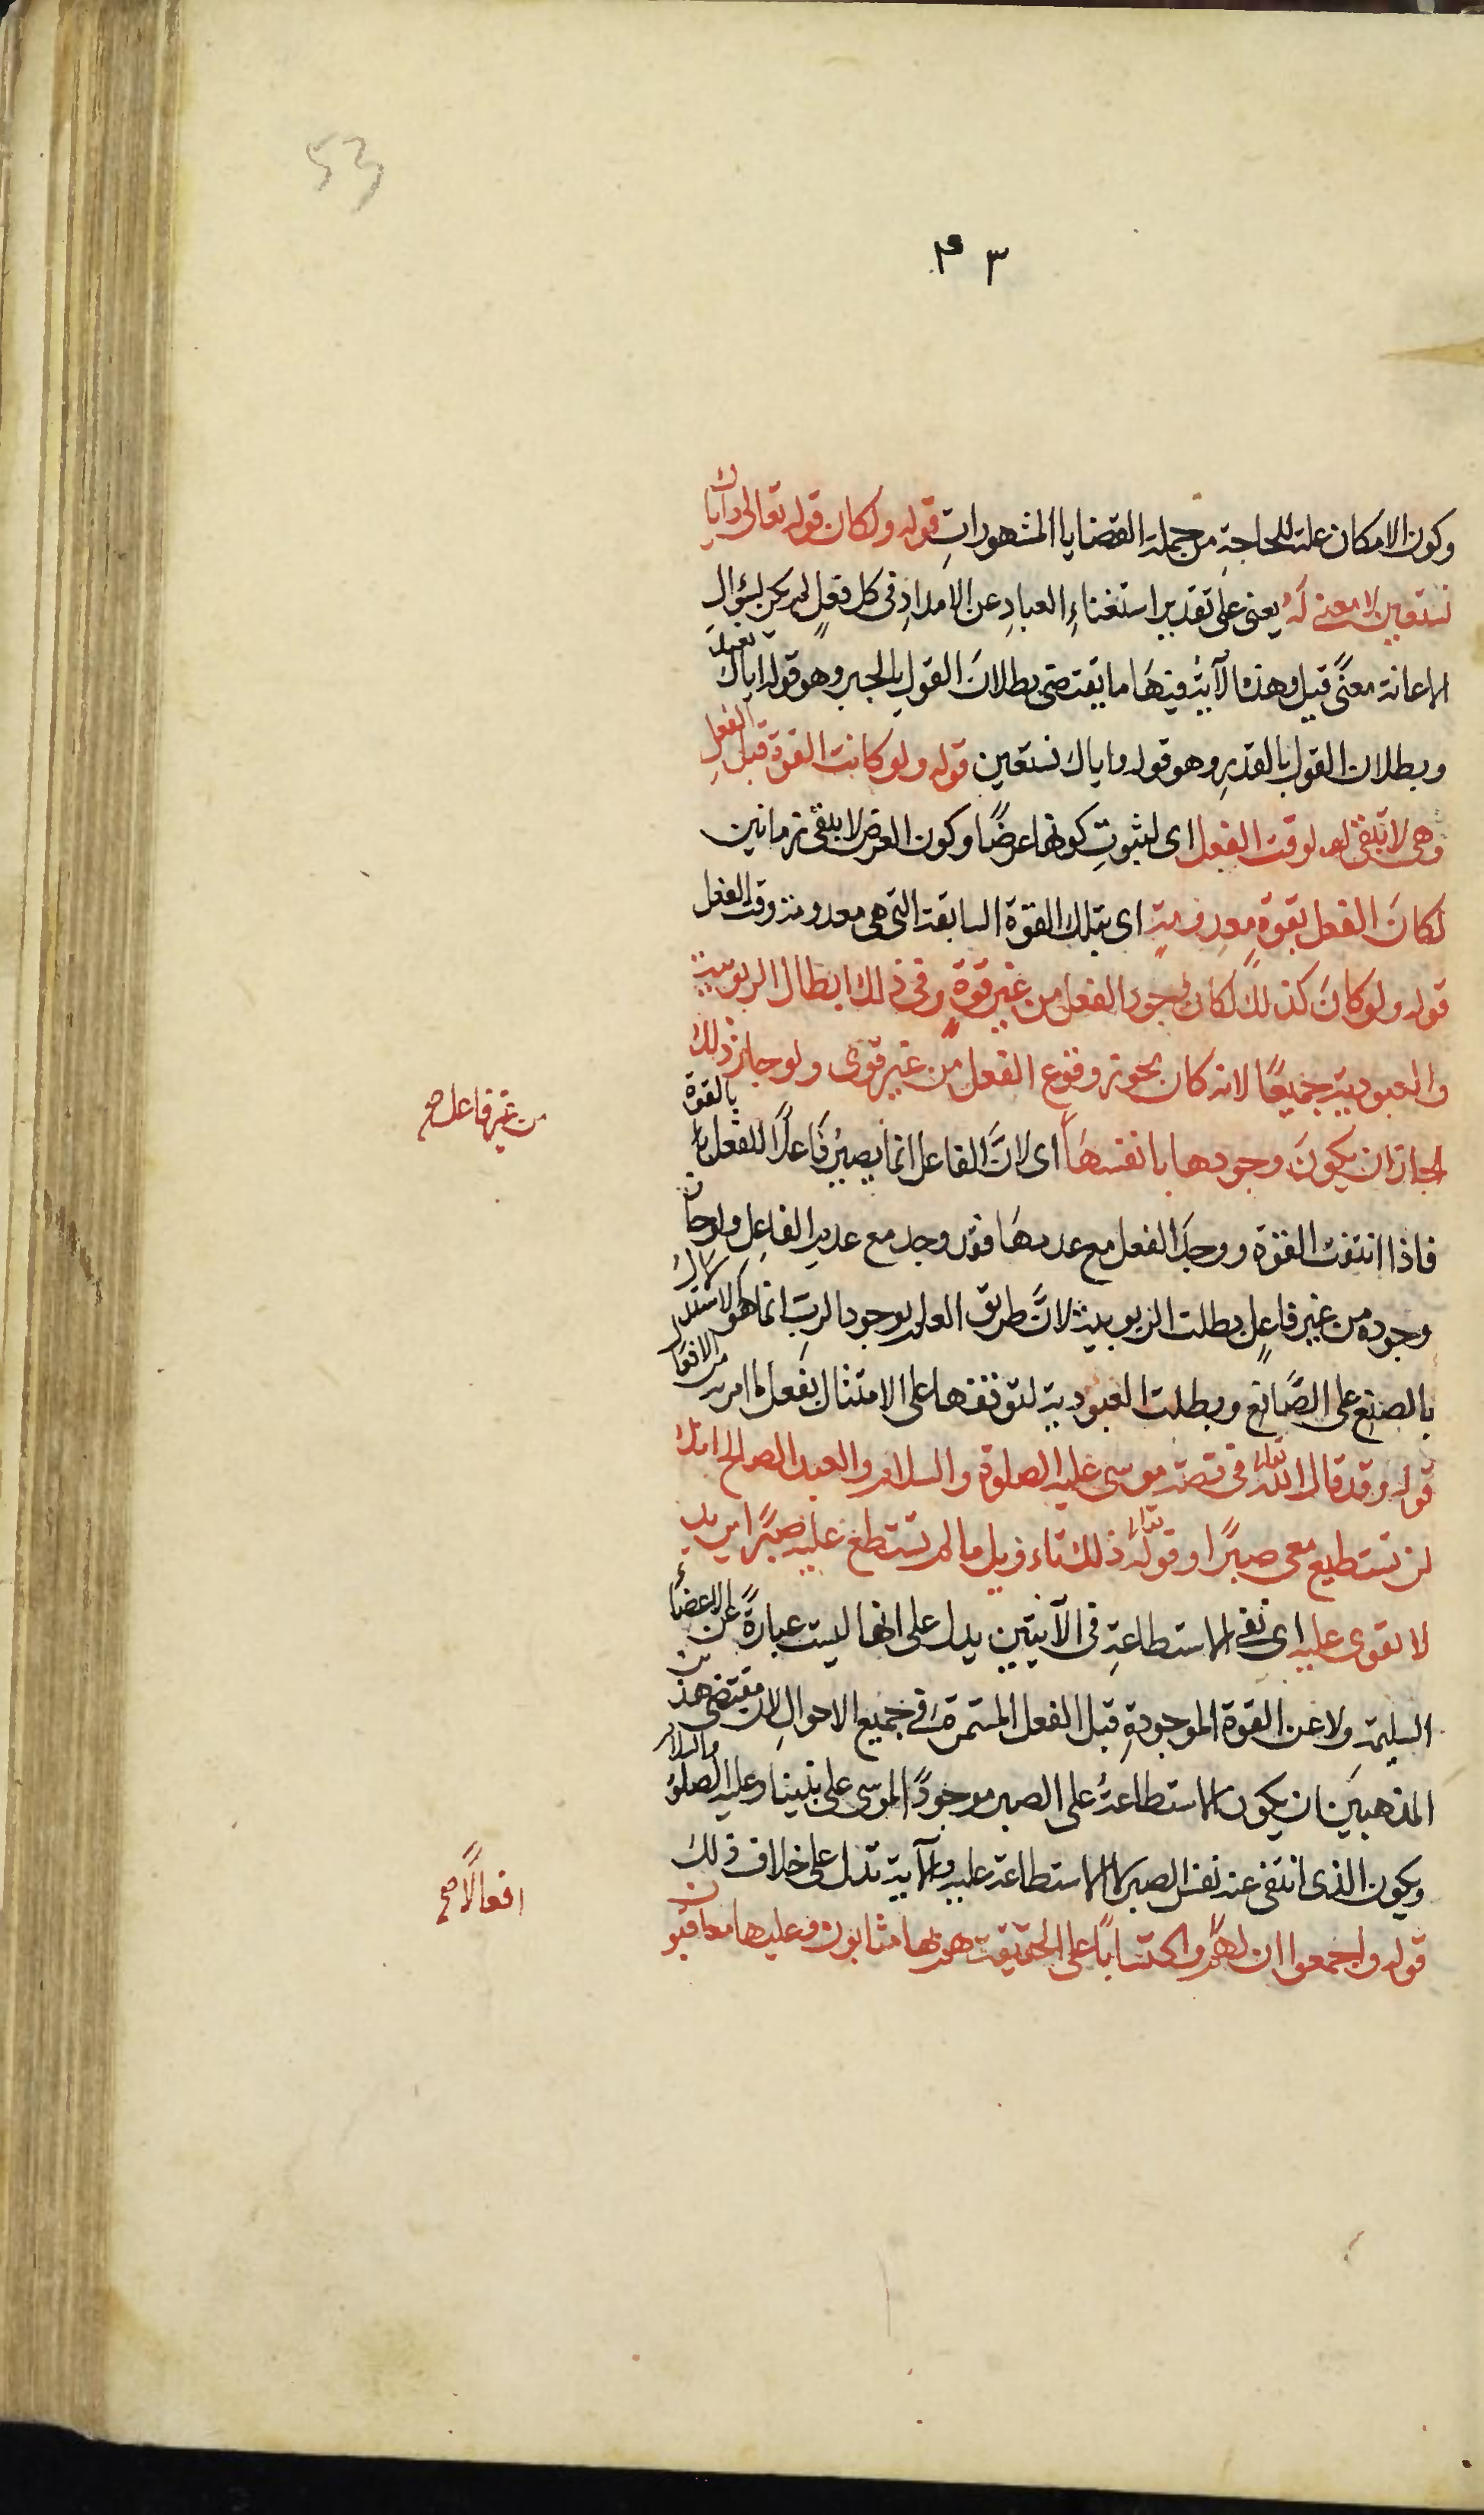 53
٤٣
وكون الامكان علة للحاجة من جملة القضايا المشهورات قوله ولكان قوله تعالى واياك
نستعين لا معنى له يعنى على تقدير استغناء العباد عن الامداد فى كل فعل لم يكن لسؤال
الاعانة معنًى قيل وهذه الآية فيها ما يقتضى بطلان القول بالجبر وهو قوله اياك نعبد
وبطلان القول بالقدر وهو قوله واياك نستعين قوله ولو كانت القوة قبل الفعل
وهى لا تبقى لوقت الفعل اى لثبوت كونها عرضًا وكون العرض لا يبقى زمانين
لكان الفعل بقوةٍ معدومةٍ اى بتلك القوة السابقة التى هى معدومة وقت الفعل
قوله ولو كان كذلك لكان وجود الفعل من غير قوةٍ وفى ذلك ابطال الربوبية
والعبودية جميعًا لانه كان يجوز وقوع الفعل من غير قوى ولو جاز ذلك
لجاز ان يكون وجودها بانفسها اى لانّ الفاعل انما يصير فاعلًا للفعل بالقوة
من غير فاعل صح
فاذا انتفت القوة ووجد الفعل مع عدمها فقد وجد مع عدم الفاعل ولو جاز
وجوده من غير فاعلٍ بطلت الربوبية لانّ طريق العلم بوجود الرب انما هو الاستدلال
بالصنع على الصّانع وبطلت العبودية لتوقفها على الامتثال بفعل ما امر به من الافعال
قوله وقد قال الله تعالى فى قصة موسى عليه الصلوة والسلام والعبد الصالح انك
لن تستطيع معى صبرًا وقوله تعالى ذلك تاءويل ما لم تستطع عليه صبرًا يريد
لا تقوى عليه اى نفى الاستطاعة فى الآيتين يدل على انها ليست عبارةً عن الاعضاء
السليمة ولا عن القوة الموجودةِ قبل الفعل المستمرة فى جميع الاحوال لان مقتضى هذين
المذهبين ان يكون الاستطاعةُ على الصبر موجودًا لموسى على نبينا وعليه الصلوة والسلام
ويكون الذى انتفى عنه نفس الصبر لا الاستطاعة عليه والآية تدل على خلاف ذلك
افعالًا صح
قوله واجمعوا ان لهم واكتسابًا على الحقيقة هم بها مثابون وعليها معاقبون